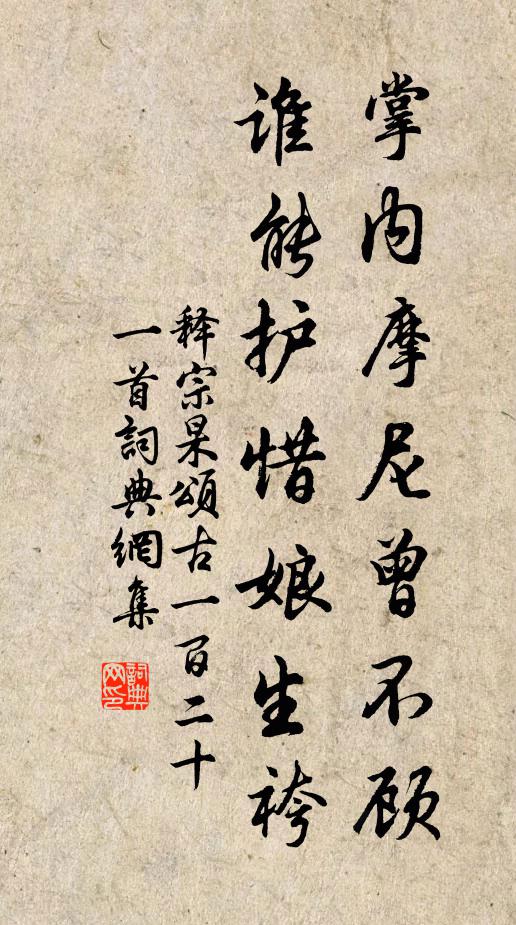 掌内摩尼曾不顾
谁能护惜娘生袴
释宗杲颂古一百二十
一首詞典網集
詞典网印